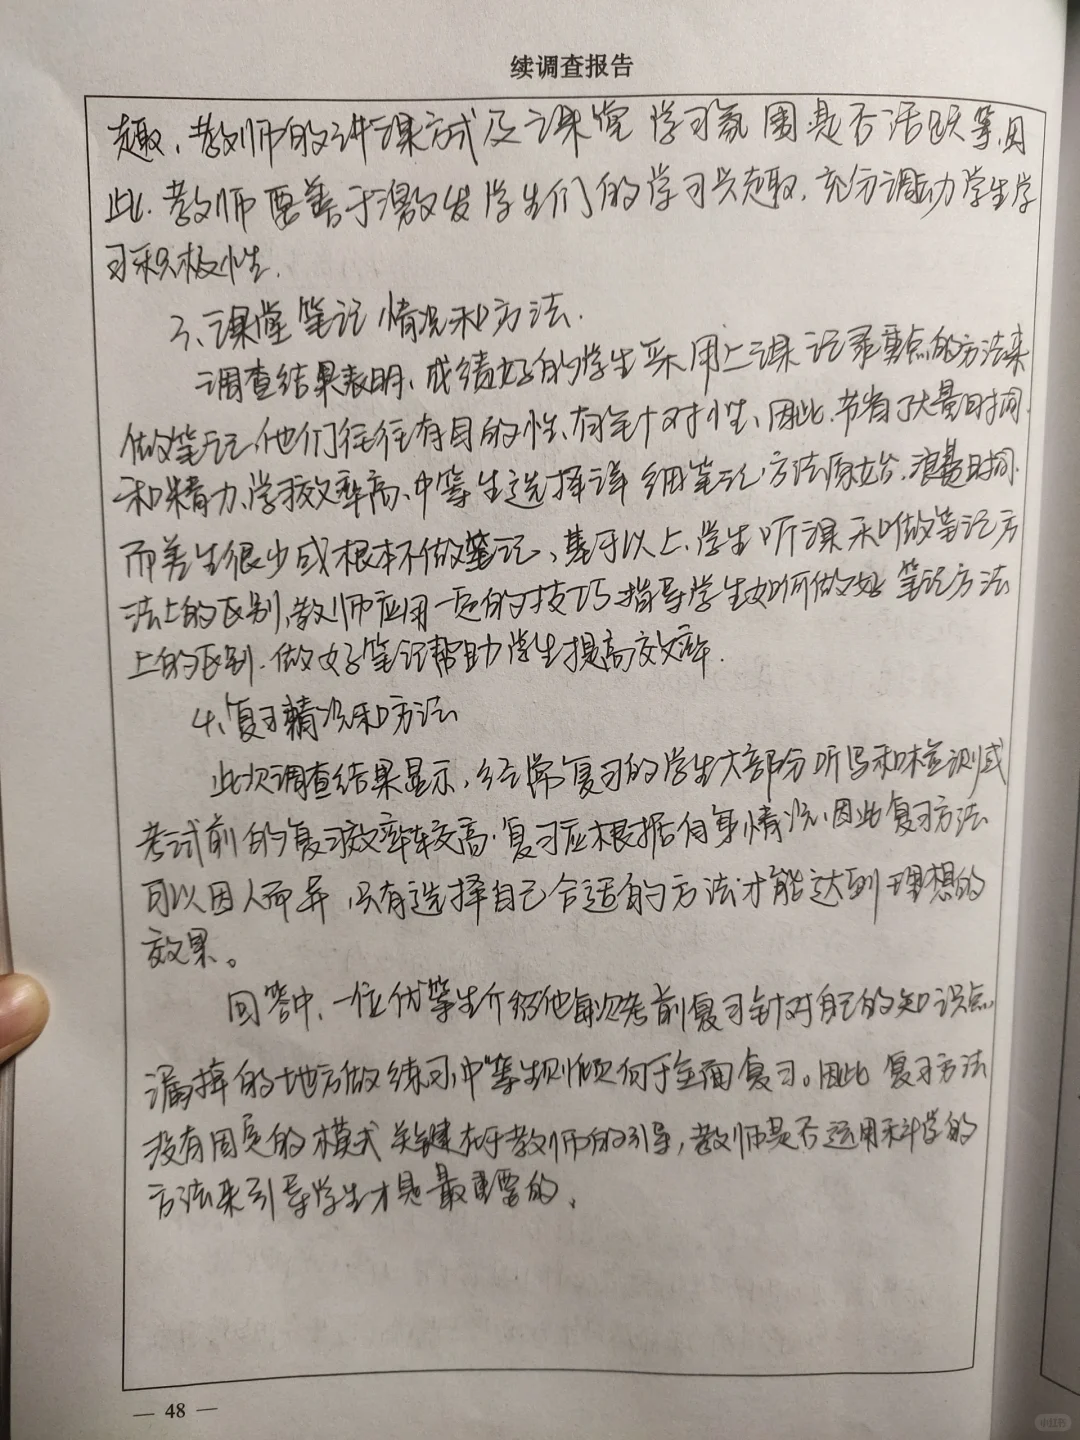 续调查报告
趣、教师的讲课方式及课堂学习氛围是否活跃等,因
此.教师要善于激发学生们的学习兴趣,充分调动学生学
习积极性.
3、课堂笔记情况和方法.
调查结果表明、成绩好的学生采用上课记录重点的方法来
做笔记,他们往往有目的性、有针对性、因此.节省了大量时间.
和精力、学按效率高、中等生选择详细笔记方法原始.浪费时间.
而差生很少或根本不做笔记、基于以上、学生听课和做笔记方
法上的区别,教师应用一定的技巧指导学生如何做好笔记方法
上的区别.做好笔记帮助学生提高效率.
4、复习情况和方法
此次调查结果显示,经常复习的学生大部分听写和检测或
考试前的复习效率较高.复习应根据自身情况、因此复习方法
可以因人而异,只有选择自己合适的方法才能达到理想的
效果。
回答中、一位优等生介绍他每次考前复习针对自己的知识点
漏掉的地方做练习、中等生则倾向于全面复习。因此复习方法
没有固定的模式关键在于教师的引导,教师是否运用科学的
方法来引导学生才是最重要的、
— 48 —
小红书